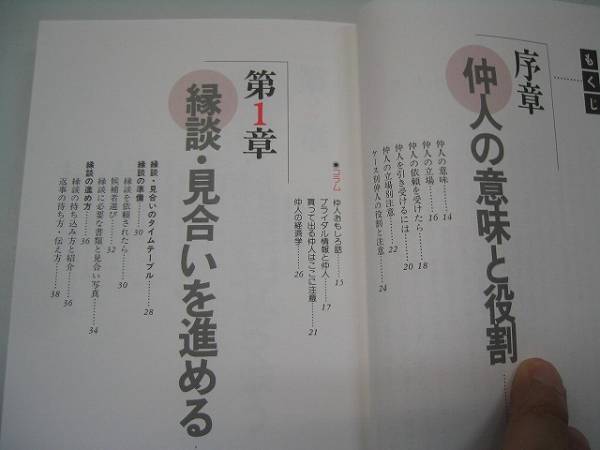 もくじ
序章
仲人の意味と役割
仲人の意味……14
仲人の立場……16
仲人の依頼を受けたら……18
仲人を引き受けるには……20
仲人の立場別注意……22
ケース別仲人の役割と注意……24
●コラム
仲人おもしろ話……15
ブライダル情報と仲人……17
買って出る仲人はここに注意……21
仲人の経済学……26
第1章
縁談・見合いを進める
縁談・見合いのタイムテーブル……28
縁談の準備……30
縁談を依頼されたら……30
候補者選び……32
縁談に必要な書類と見合い写真……34
縁談の進め方……36
縁談の持ち込み方と紹介……36
返事の待ち方・伝え方……38